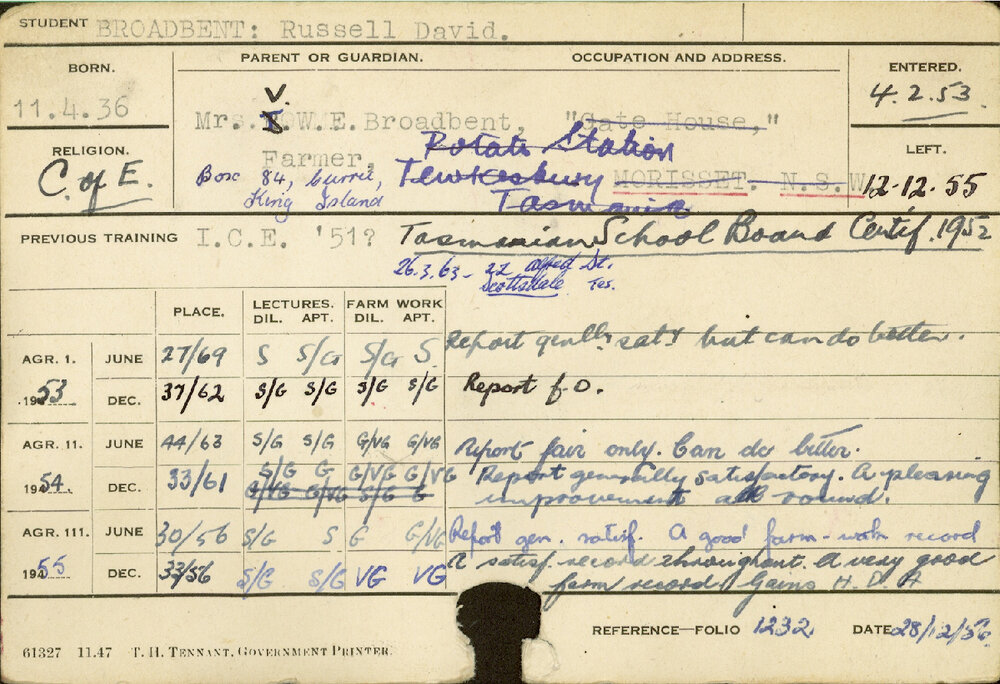 STUDENT BROADBENT: Russell David.
BORN. PARENT OR GUARDIAN. OCCUPATION AND ADDRESS. ENTERED.
11.4.36 4.2.53.
V.
Mrs. W.E. Broadbent, "Gate House,"
RELIGION. Farmer, Potato Station LEFT.
C. of E. Box 84, Currie, Tewkesbury MORISSET. N.S.W. 12-12.55
King Island Tasmania
PREVIOUS TRAINING I.C.E. '51? Tasmanian School Board Certif. 1952
26.3.63 - 22 Alfred St.
Scottsdale Tas.
PLACE. LECTURES. FARM WORK
DIL. APT. DIL. APT.
AGR. 1. JUNE 27/69 S S/G S/G S Report genlly sat. but can do better.
1953 DEC. 37/62 S/G S/G S/G S/G Report f.O.
AGR. 11. JUNE 44/63 S/G S/G G/VG G/VG Report fair only. Can do better.
1954. DEC. 33/61 S/G G G/VG G/VG Report generally satisfactory. A pleasing
G/VG G/VG S/G G improvement all round.
AGR. 111. JUNE 30/56 S/G S G G/VG Report gen. satisf. A good farm-work record
1955 DEC. 33/56 S/G S/G VG VG A satisf. record throughout. A very good
farm record. Gains H.D.A
REFERENCE—FOLIO 1232. DATE 28/12/56.
61327 11.47 T. H. TENNANT, GOVERNMENT PRINTER.